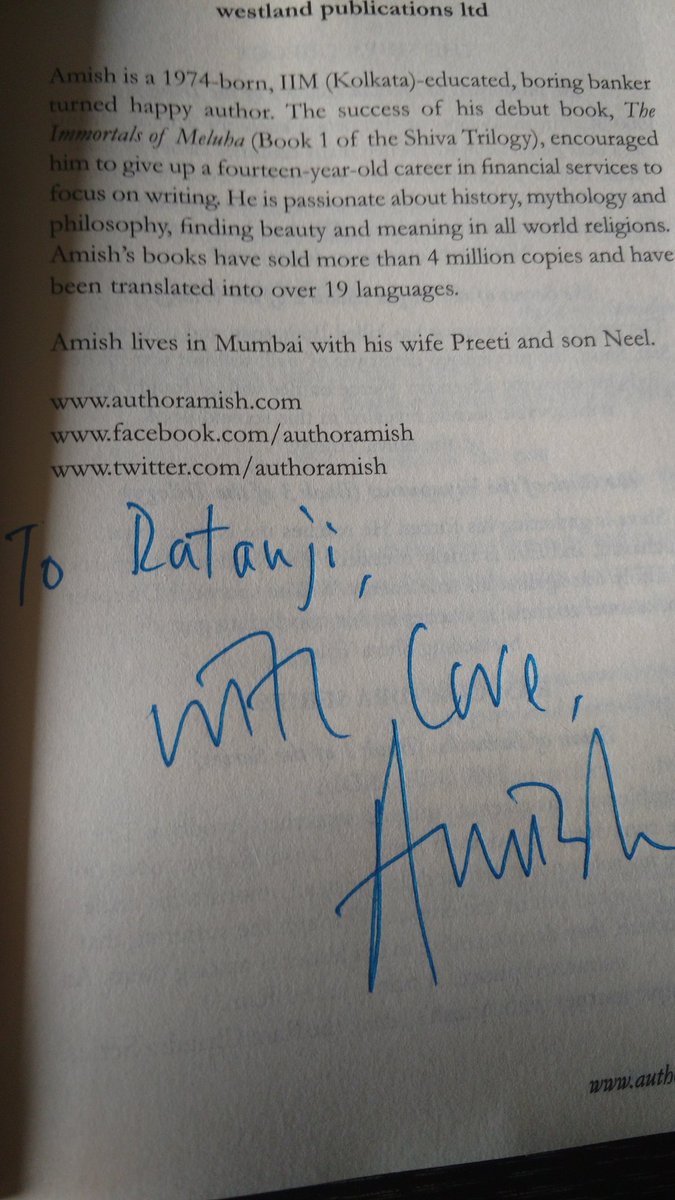 westland publications ltd
Amish is a 1974-born, IIM (Kolkata)-educated, boring banker
turned happy author. The success of his debut book, The
Immortals of Meluha (Book 1 of the Shiva Trilogy), encouraged
him to give up a fourteen-year-old career in financial services to
focus on writing. He is passionate about history, mythology and
philosophy, finding beauty and meaning in all world religions.
Amish's books have sold more than 4 million copies and have
been translated into over 19 languages.
Amish lives in Mumbai with his wife Preeti and son Neel.
www.authoramish.com
www.facebook.com/authoramish
www.twitter.com/authoramish
To Ratanji,
with Love,
Amish
www.autho